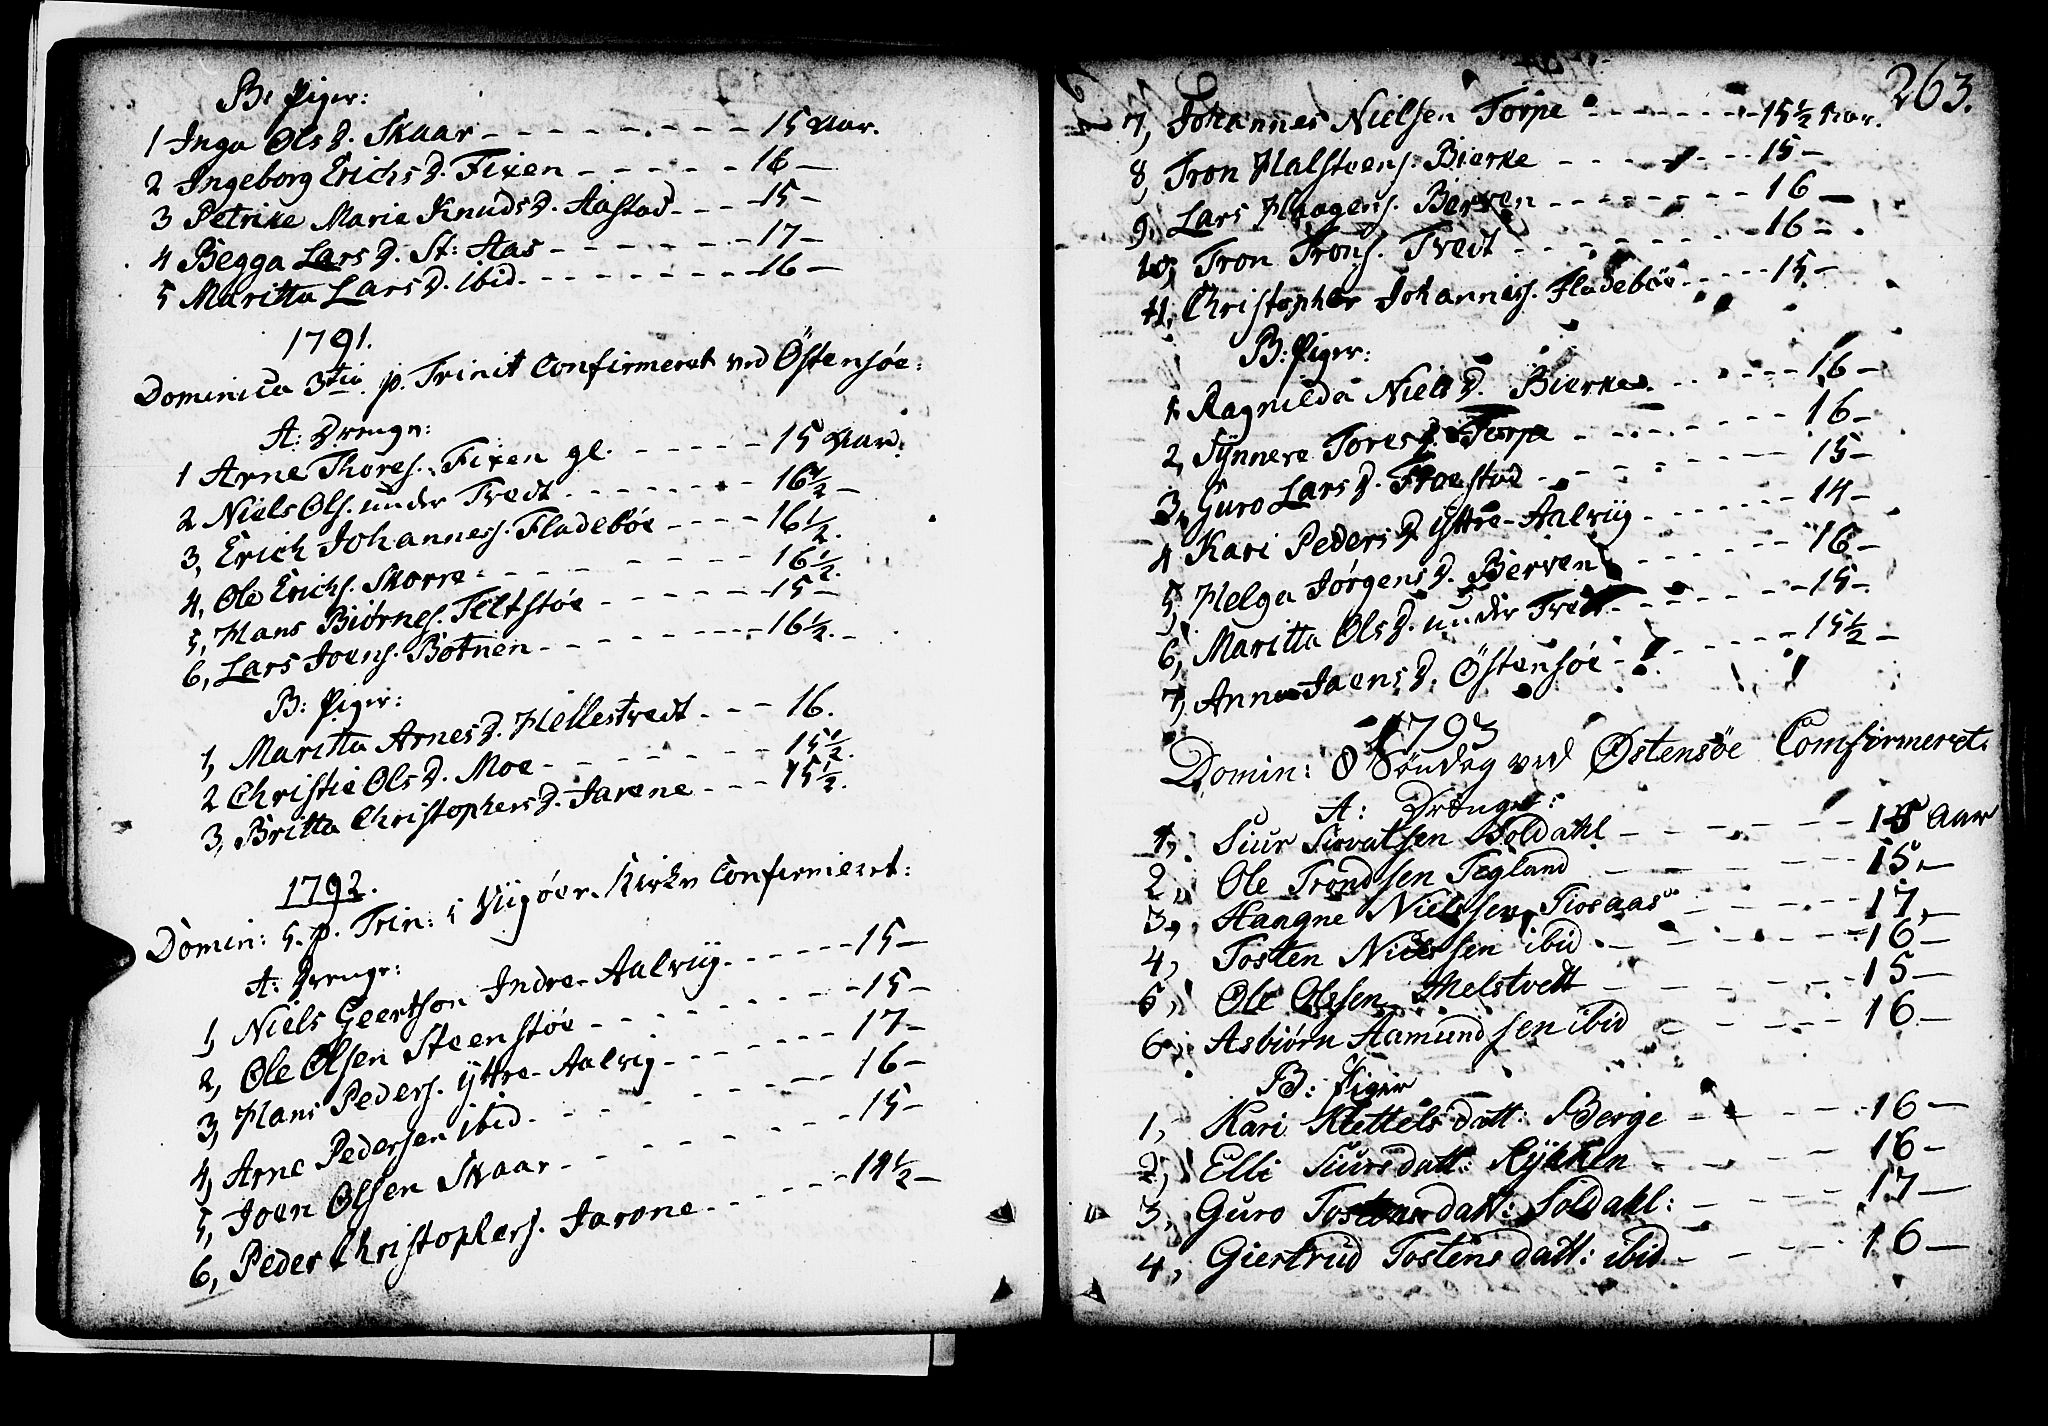 B: Piger:
1 Inga OlsD. Skaar - - - - - - - 15 Aar.
2 Ingeborg ErichsD. Fixen - - - - - 16 -
3 Petrike Maria KnudsD. Aastad - - - 15 -
4 Begga LarsD. St: Aas - - - - - - 17 -
5 Maritta LarsD. ibid. - - - - - - - 16 -
1791.
Dominica 3tia p. Trinit Confirmeret ved Östensöe:
A: Drenge:
1 Arne Thores. Fixen gl. - - - - - 15 Aar.
2 Niels Ols. under Tvedt - - - - - - 16½ -
3, Erich Johanness. Fladeböe - - - - 16½.
4, Ole Erichs. Skorre - - - - - - - 16½.
5, Hans Biörnes. Teltstöe - - - - - 15 -
6, Lars Joens. Botnen - - - - - - - 16½. -
B: Piger:
1, Maritta ArnesD. Hellestvedt - - - 16.
2 Christie OlsD. Moe - - - - - - 15½.
3, Britta ChristophersD. Jarene - - - 15½.
1792.
Domin: 5. p. Trin: i Viigöer Kirke Confirmeret:
A: Drenge:
1, Niels Geertson Indre-Aalviig - - - - - 15 -
2, Ole Olsen Steenstöe - - - - - - - 15 -
3, Hans Peders. Yttre-Aalvig - - - - - - 17 -
4, Arne Pedersen ibid. - - - - - - - 16 -
5, Joen Olsen Skaar - - - - - - - 15 -
6, Peder Christophers. Jarone - - - - - 14½ -
263.
7, Johannes Nielsen Torpe - - - - - - 15½ Aar.
8, Tron Halsteens. Bierke - - - - - - 15 -
9, Lars Haagens. Berven - - - - - - - 16 -
10, Tron Trons. Tvedt - - - - - - - 16 -
11, Christopher Johanness. Fladeböe - - - - 15 -
B: Piger:
1 Ragnilda NielsD. Bierke - - - - - - 16 -
2, Synnere ToresD. Torpe - - - - - - 16 -
3, Guro LarsD. - - - - - - - 15 -
4 Kari PedersD. Yttre-Aalviig - - - - - 14 -
5, Helga JörgensD. Berven - - - - - - 16 -
6, Maritta OlsD. under Tvedt - - - - - - 15 -
7, Anna JaensD. Östensöe - - - - - - 15½ -
1793
Domin: 8 Söndag ved Östensöe Comfirmeret:
A: Drenge:
1, Siur Sirvatsen Soldahl - - - - - - 15 Aar
2, Ole Trondsen Tegland - - - - - 15, -
3, Haagne Nielssen Tiosaas - - - - - 17, -
4, Tosten Nielssen ibid - - - - - - 16 -
5, Ole Olssen Melstvett - - - - - - 15 -
6, Asbiörn Hamundsen ibid - - - - - 16 -
B: Piger
1, Kari Klettelsdatt: Berge - - - - - 16 -
2, Elli Siursdatt: Rykken - - - - - 16 -
3, Guro Tostensdatt: Soldahl: - - - - - 17 -
4, Giertrud Tostensdatt: ibid - - - - - 16 -